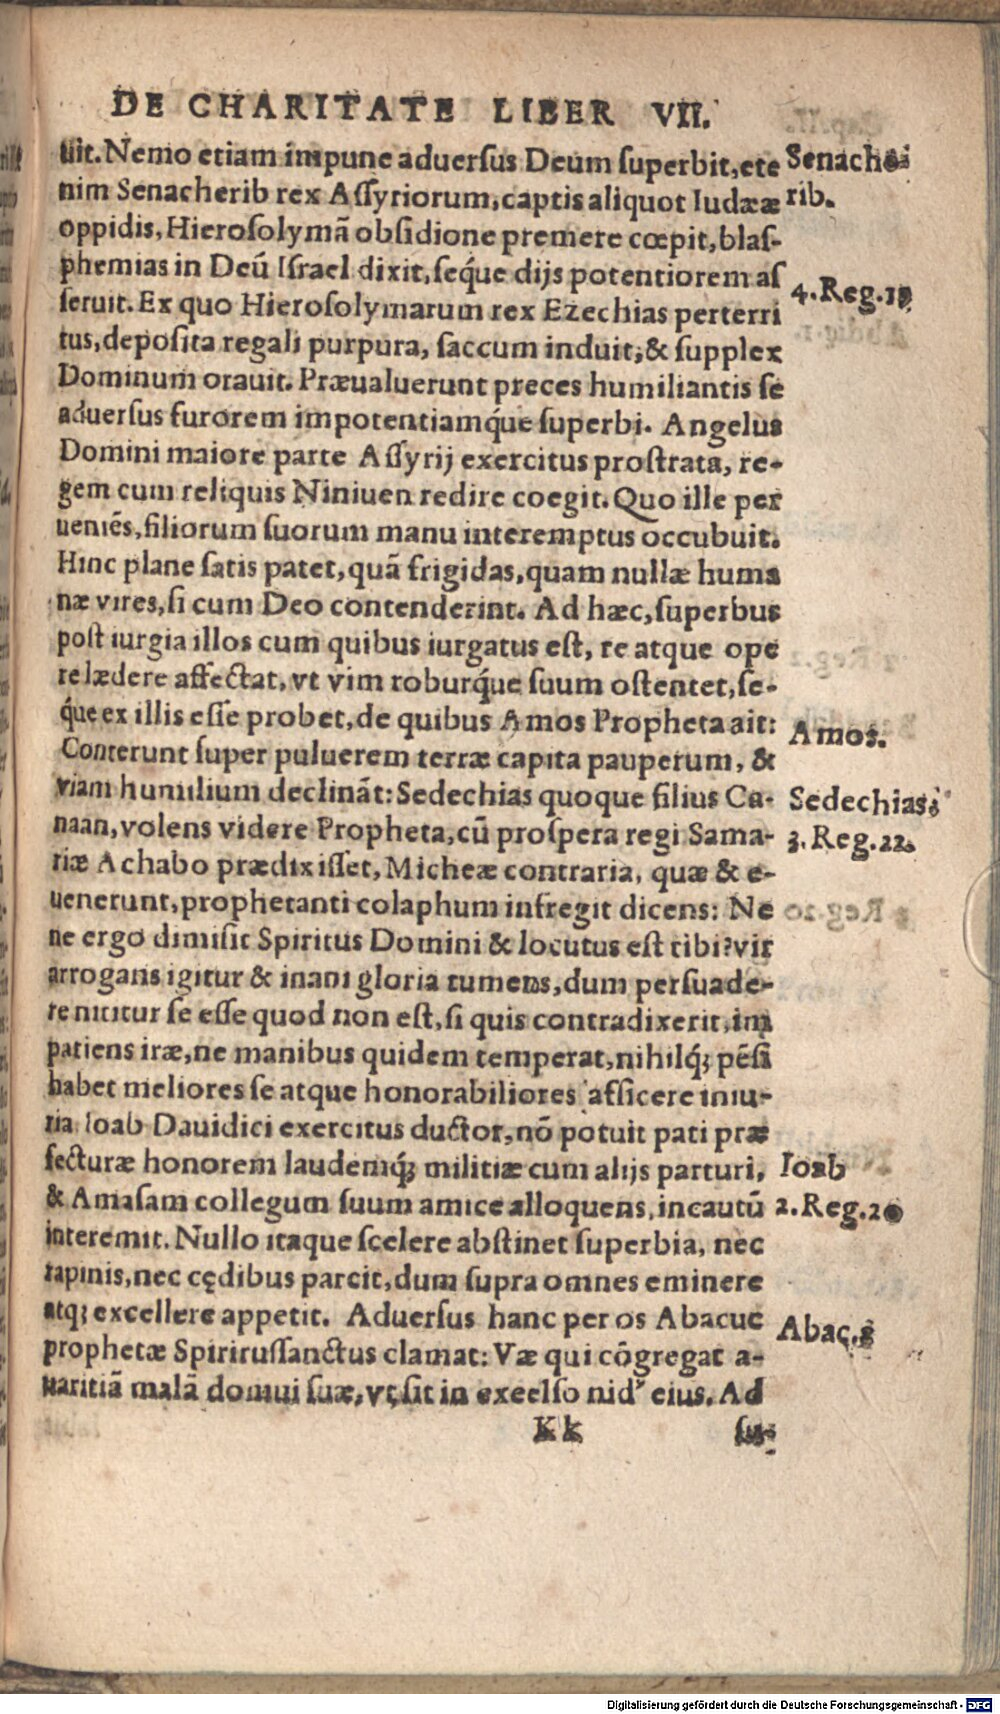 DE CHARITATE LIBER VII.
uit. Nemo etiam impune aduersus Deum superbit, ete
nim Senacherib rex Assyriorum, captis aliquot Iudææ
oppidis, Hierosolymā obsidione premere cœpit, blas-
phemias in Deū Israel dixit, seq́ue dijs potentiorem as
seruit. Ex quo Hierosolymarum rex Ezechias perterri
tus, deposita regali purpura, saccum induit, & supplex
Dominum orauit. Præualuerunt preces humiliantis se
aduersus furorem impotentiamq́ue superbi. Angelus
Domini maiore parte Assyrij exercitus prostrata, re-
gem cum reliquis Niniuen redire coegit. Quo ille per
ueniēs, filiorum suorum manu interemptus occubuit.
Hinc plane satis patet, quā frigidas, quam nullæ huma
næ vires, si cum Deo contenderint. Ad hæc, superbus
post iurgia illos cum quibus iurgatus est, re atque ope
re lædere affectat, vt vim roburq́ue suum ostentet, se-
q́ue ex illis esse probet, de quibus Amos Propheta ait:
Conterunt super puluerem terræ capita pauperum, &
viam humilium declināt: Sedechias quoque filius Ca-
naan, volens videre Propheta, cū prospera regi Sama-
riæ Achabo prædixisset, Micheæ contraria, quæ & e-
uenerunt, prophetanti colaphum infregit dicens: Ne
ne ergo dimisit Spiritus Domini & locutus est tibi? vir
arrogans igitur & inani gloria tumens, dum persuade-
re nititur se esse quod non est, si quis contradixerit, im
patiens iræ, ne manibus quidem temperat, nihilq́; pēsi
habet meliores se atque honorabiliores afficere iniu-
ria. Ioab Dauidici exercitus ductor, nō potuit pati præ
fecturæ honorem laudemq́; militiæ cum alijs parturi,
& Amasam collegum suum amice alloquens, incautū
interemit. Nullo itaque scelere abstinet superbia, nec
rapinis, nec cędibus parcit, dum supra omnes eminere
atq; excellere appetit. Aduersus hanc per os Abacuc
prophetæ Spirirussanctus clamat: Væ qui cōgregat a-
uaritiā malā domui suæ, vt sit in exeelso nidꝰ eius. Ad
Kk su-
Senache-
rib.
4. Reg. 19
Amos.
Sedechias
3. Reg. 22.
Ioab
2. Reg. 20
Abac.
Digitalisierung gefördert durch die Deutsche Forschungsgemeinschaft - DFG